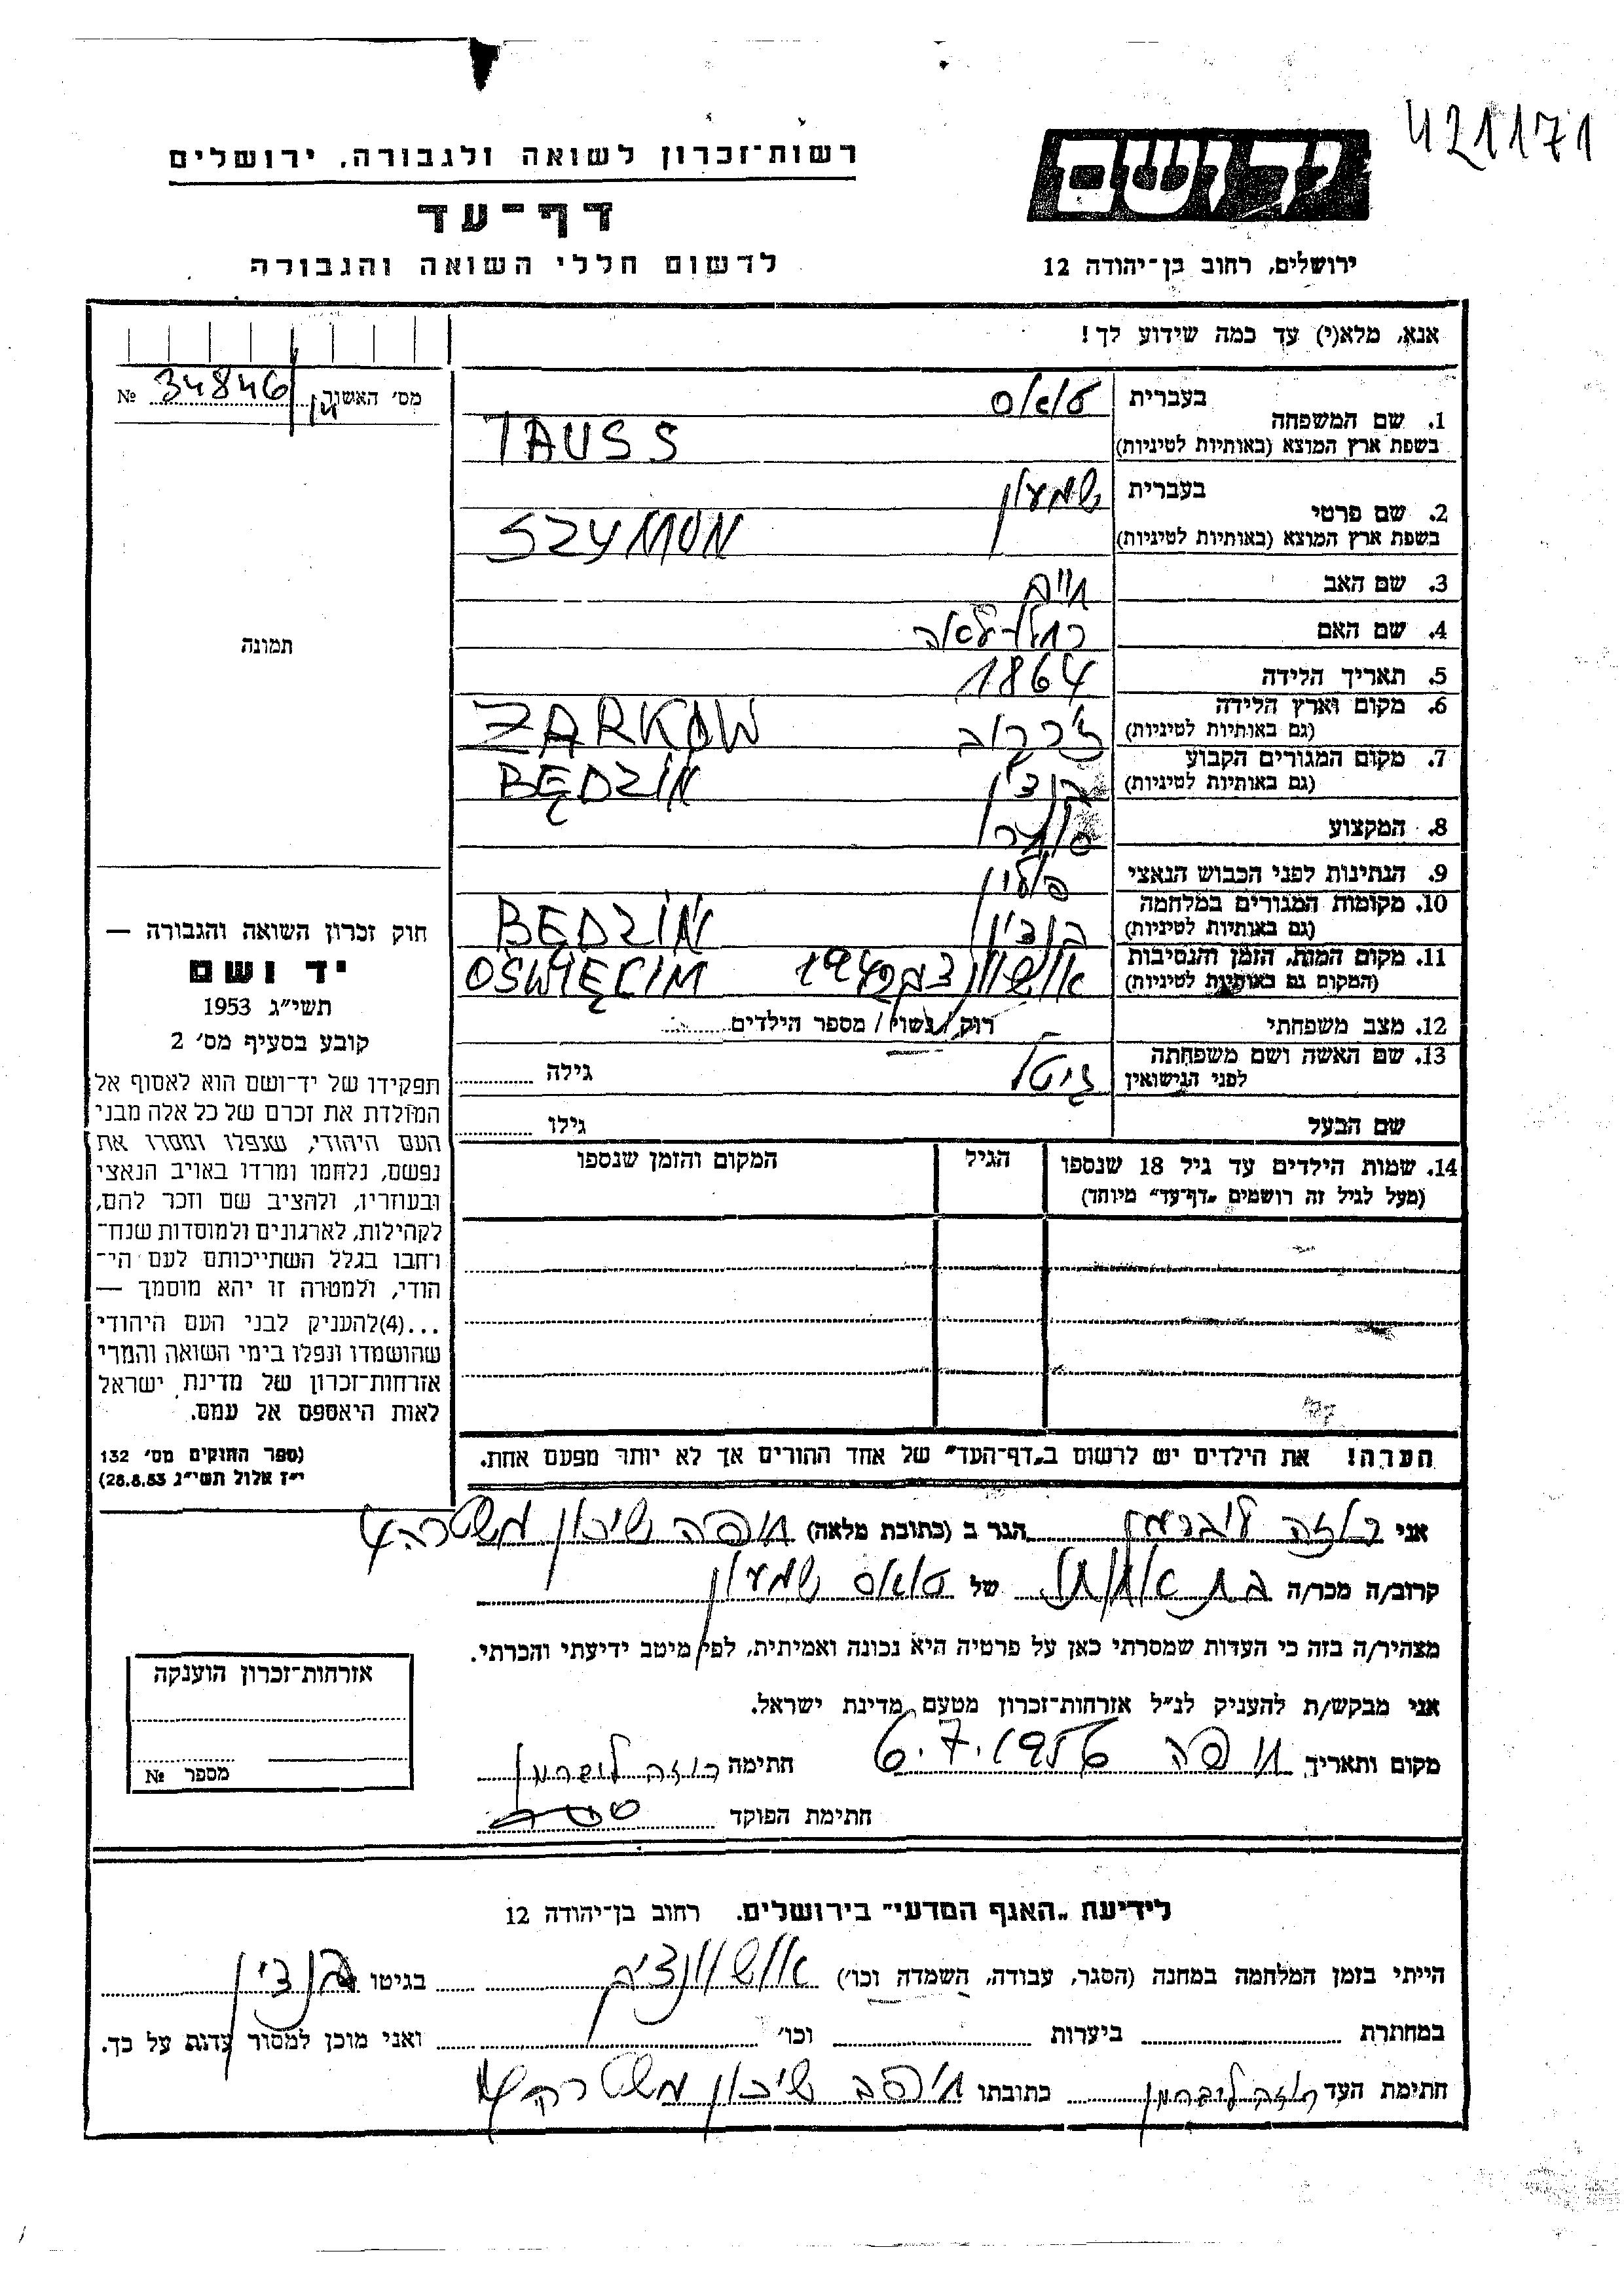 421171
יד ושם
רשות־זכרון לשואה ולגבורה, ירושלים
דף־עד
לרשום חללי השואה והגבורה
ירושלים, רחוב בן־יהודה 12
אנא, מלא(י) עד כמה שידוע לך!
מס' האשור 34846 №
בעברית טאוס
1. שם המשפחה
בשפת ארץ המוצא (באותיות לטיניות) TAUSS
בעברית שמעון
2. שם פרטי
בשפת ארץ המוצא (באותיות לטיניות) SZYMON
3. שם האב חיים
4. שם האם רחל-לאה
5. תאריך הלידה 1864
6. מקום וארץ הלידה
(גם באותיות לטיניות) ז'רקוב ŻARKOW
7. מקום המגורים הקבוע
(גם באותיות לטיניות) בנדין BĘDZIN
8. המקצוע סוחר
9. הנתינות לפני הכבוש הנאצי פולין
10. מקומות המגורים במלחמה
(גם באותיות לטיניות) בנדין BĘDZIN
11. מקום המות, הזמן והנסיבות
(המקום גם באותיות לטיניות) אושוינצים 1942 OŚWIĘCIM
12. מצב משפחתי רוק / נשוי / מספר הילדים
13. שם האשה ושם משפחתה
לפני הנישואין גיטל גילה
שם הבעל גילו
14. שמות הילדים עד גיל 18 שנספו
(מעל לגיל זה רושמים „דף־עד" מיוחד)
הגיל
המקום והזמן שנספו
הערה! את הילדים יש לרשום ב„דף־העד" של אחד ההורים אך לא יותר מפעם אחת.
תמונה
חוק זכרון השואה והגבורה —
יד ושם
תשי"ג 1953
קובע בסעיף מס' 2
תפקידו של יד־ושם הוא לאסוף אל
המולדת את זכרם של כל אלה מבני
העם היהודי, שנפלו ומסרו את
נפשם, נלחמו ומרדו באויב הנאצי
ובעוזריו, ולהציב שם וזכר להם,
לקהילות, לארגונים ולמוסדות שנח־
רבו בגלל השתייכותם לעם הי־
הודי, ולמטרה זו יהא מוסמך —
...(4)להעניק לבני העם היהודי
שהושמדו ונפלו בימי השואה והמרי
אזרחות־זכרון של מדינת ישראל
לאות היאספם אל עמם.
(ספר החוקים מס' 132
י"ז אלול תשי"ג 28.8.53)
אני רוזה ליברמן הגר ב (כתובת מלאה) חיפה שיכון משטרה 4
קרוב/ה מכר/ה בת אחות של טאוס שמעון
מצהיר/ה בזה כי העדות שמסרתי כאן על פרטיה היא נכונה ואמיתית, לפי מיטב ידיעתי והכרתי.
אני מבקש/ת להעניק לנ"ל אזרחות־זכרון מטעם מדינת ישראל.
מקום ותאריך חיפה 6.7.1956 חתימה רוזה ליברמן
חתימת הפוקד
אזרחות־זכרון הוענקה
מספר №
לידיעת „האגף המדעי" בירושלים. רחוב בן־יהודה 12
הייתי בזמן המלחמה במחנה (הסגר, עבודה, השמדה וכו') אושוינצים בגיטו בנדין
במחתרת ביערות וכו' ואני מוכן למסור עדות על כך.
חתימת העד רוזה ליברמן כתובתו חיפה שיכון משטרה 4